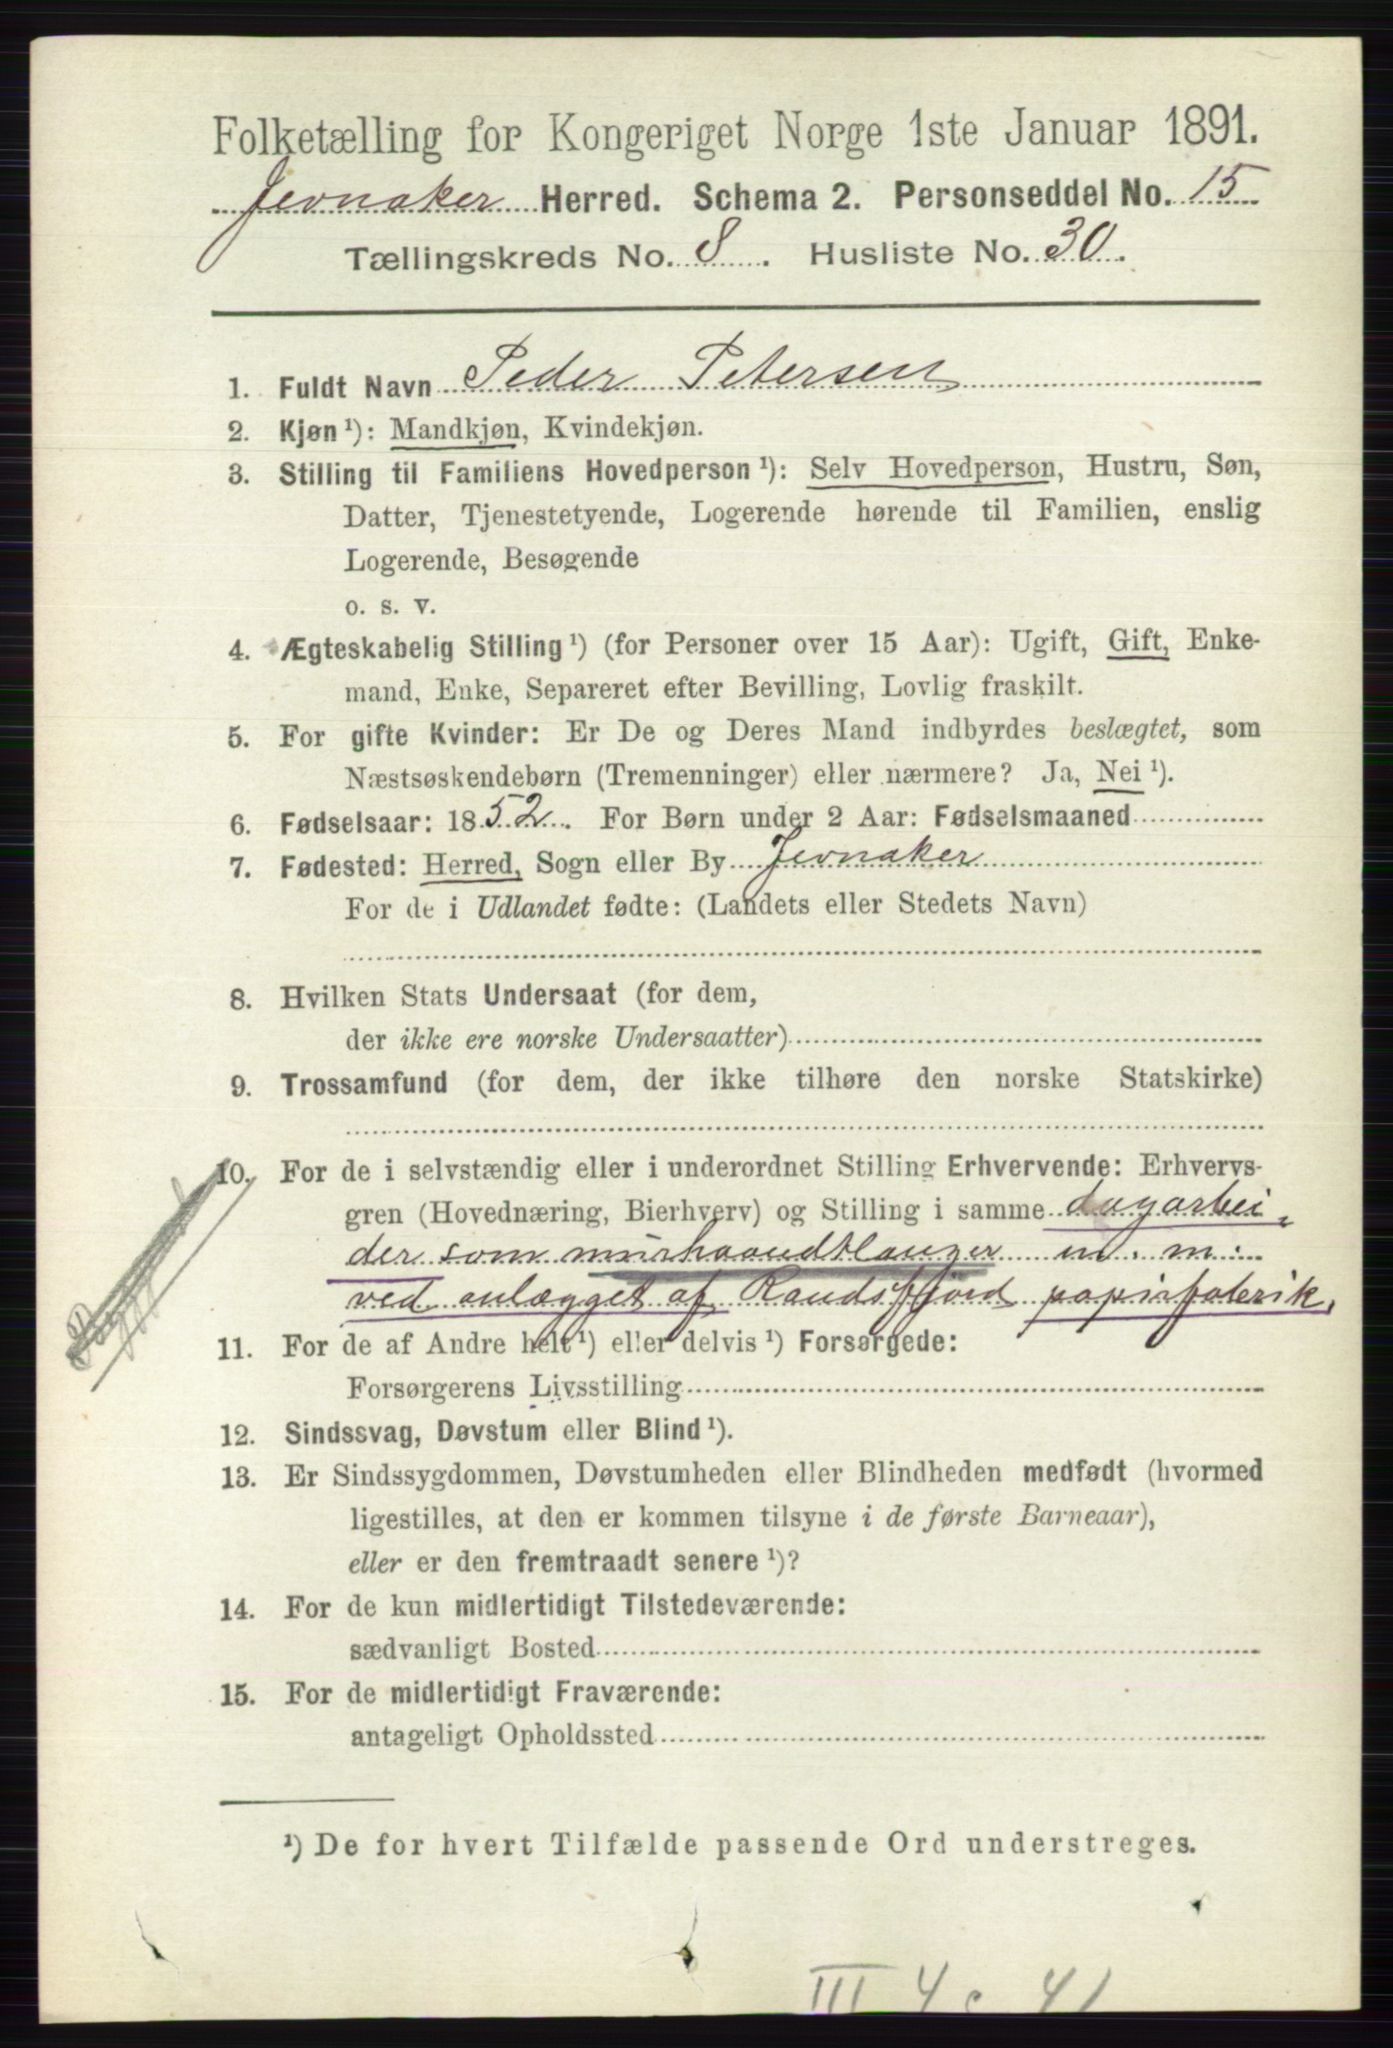 Folketælling for Kongeriget Norge 1ste Januar 1891.
Jevnaker Herred. Schema 2. Personseddel No. 15
Tællingskreds No. 8. Husliste No. 30.
1. Fuldt Navn Peder Petersen
2. Kjøn ¹): Mandkjøn, Kvindekjøn.
3. Stilling til Familiens Hovedperson ¹): Selv Hovedperson, Hustru, Søn,
Datter, Tjenestetyende, Logerende hørende til Familien, enslig
Logerende, Besøgende
o. s. v.
4. Ægteskabelig Stilling ¹) (for Personer over 15 Aar): Ugift, Gift, Enke-
mand, Enke, Separeret efter Bevilling, Lovlig fraskilt.
5. For gifte Kvinder: Er De og Deres Mand indbyrdes beslægtet, som
Næstsøskendebørn (Tremenninger) eller nærmere? Ja, Nei ¹).
6. Fødselsaar: 1852. For Børn under 2 Aar: Fødselsmaaned
7. Fødested: Herred, Sogn eller By Jevnaker
For de i Udlandet fødte: (Landets eller Stedets Navn)
8. Hvilken Stats Undersaat (for dem,
der ikke ere norske Undersaatter)
9. Trossamfund (for dem, der ikke tilhøre den norske Statskirke)
10. For de i selvstændig eller i underordnet Stilling Erhvervende: Erhvervs-
gren (Hovednæring, Bierhverv) og Stilling i samme dagarbei
der som murhaandtlanger m. m.
ved anlægget af Randsfjord papirfabrik.
11. For de af Andre helt ¹) eller delvis ¹) Forsørgede:
Forsørgerens Livsstilling
12. Sindssvag, Døvstum eller Blind ¹).
13. Er Sindssygdommen, Døvstumheden eller Blindheden medfødt (hvormed
ligestilles, at den er kommen tilsyne i de første Barneaar),
eller er den fremtraadt senere ¹)?
14. For de kun midlertidigt Tilstedeværende:
sædvanligt Bosted
15. For de midlertidigt Fraværende:
antageligt Opholdssted
¹) De for hvert Tilfælde passende Ord understreges.
III 4c 41